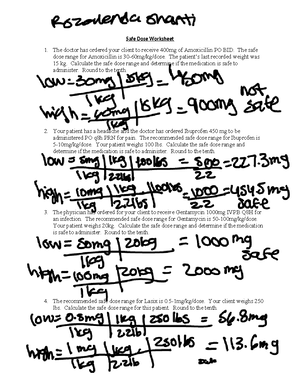 Rozavenda Shanti
Safe Dose Worksheet
1. The doctor has ordered your client to receive 400mg of Amoxicillin PO BID. The safe
dose range for Amoxicillin is 30-60mg/kg/dose. The patient's last recorded weight was
15 kg. Calculate the safe dose range and determine if the medication is safe to
administer. Round to the tenth.
low = 30mg | 15kg = 450mg
1kg
high = 60mg | 15kg = 900mg not safe
1kg
2. Your patient has a headache and the doctor has ordered Ibuprofen 450 mg to be
administered PO q8h PRN for pain. The recommended safe dose range for Ibuprofen is
5-10mg/kg/dose. Your patient weighs 100 lbs. Calculate the safe dose range and
determine if the medication is safe to administer. Round to the tenth.
low = 5mg | 1kg | 100lbs = 500 = 227.3mg
1kg | 2.2lb | 2.2
high = 10mg | 1kg | 100lbs = 1000 = 454.5mg
1kg | 2.2lb | 2.2 safe
3. The physician has ordered for your client to receive Gentamycin 1000mg IVPB Q8H for
an infection. The recommended safe dose range for Gentamycin is 50-100mg/kg/dose.
Your patient weighs 20kg. Calculate the safe dose range and determine if the medication
is safe to administer. Round to the tenth.
low = 50mg | 20kg = 1000mg safe
1kg
high = 100mg | 20kg = 2000mg
1kg
4. The recommended safe dose range for Lasix is 0.5-1mg/kg/dose. Your client weighs 250
lbs. Calculate the safe dose range for this patient. Round to the tenth.
low = 0.5mg | 1kg | 250lbs = 56.8mg
1kg | 2.2lb
high = 1mg | 1kg | 250lbs = 113.6mg
1kg | 2.2lb